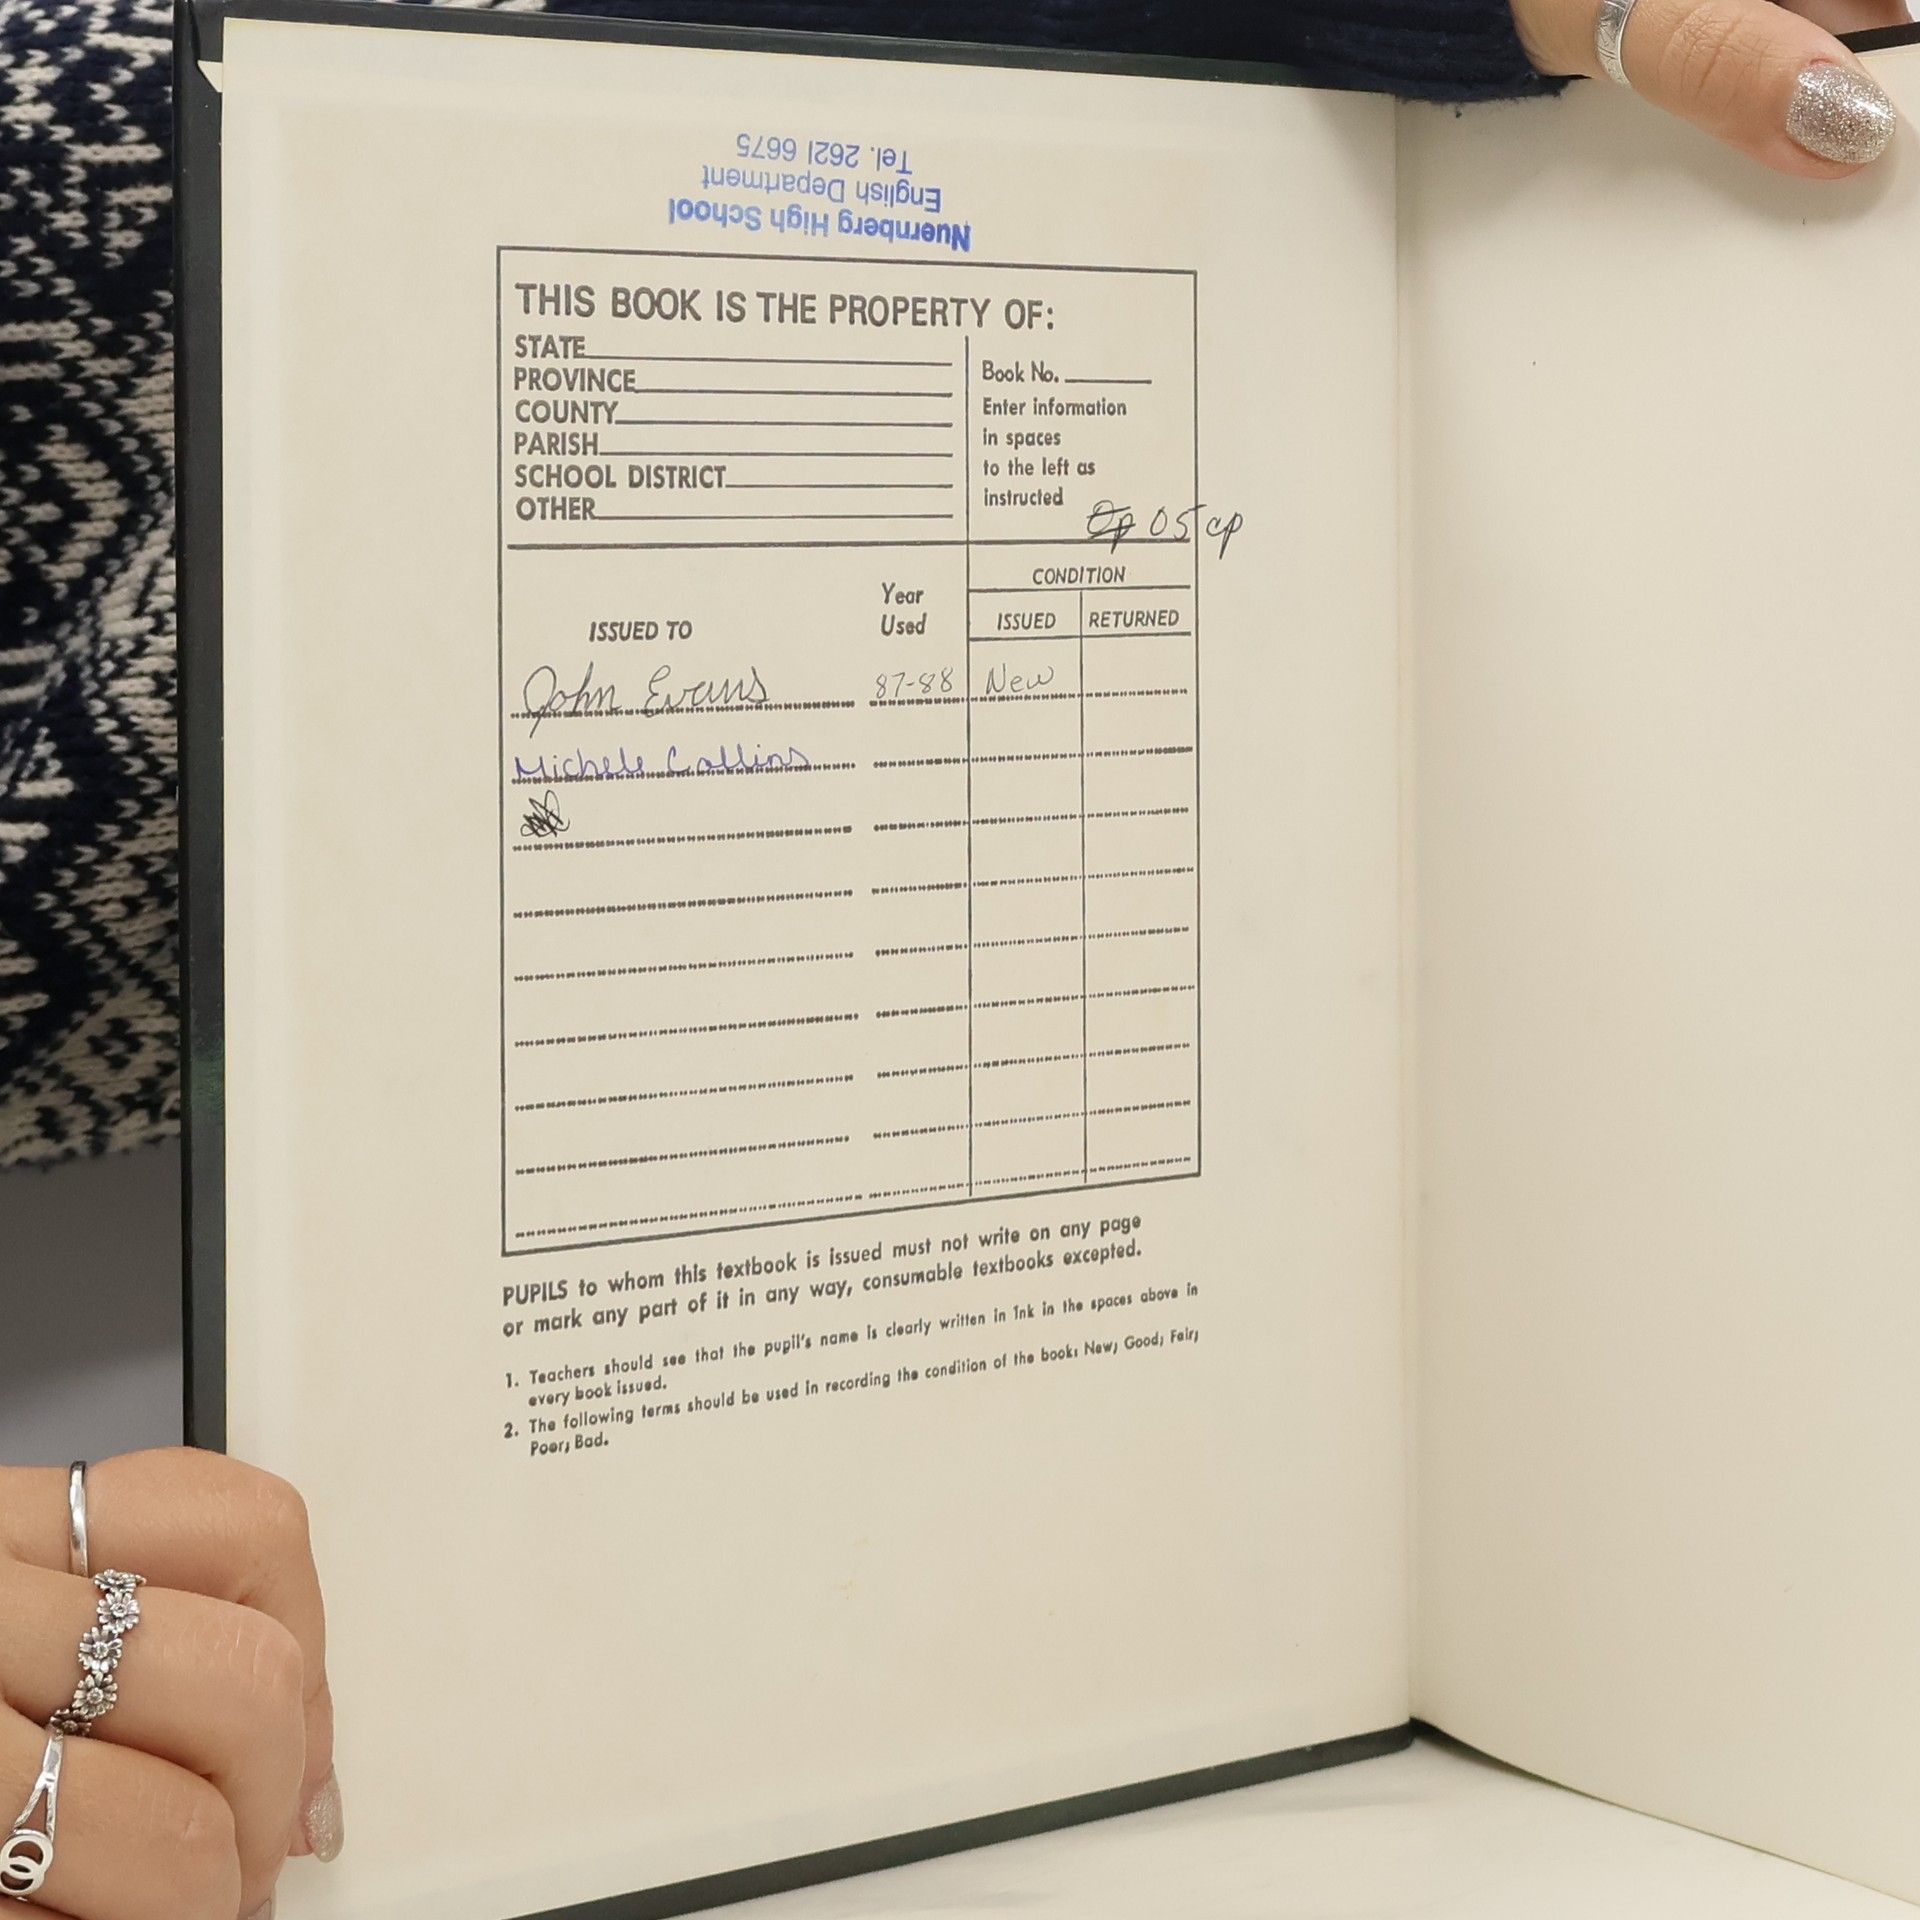 Nuernberg High School
English Department
Tel. 2621 6675
THIS BOOK IS THE PROPERTY OF:
STATE
PROVINCE
COUNTY
PARISH
SCHOOL DISTRICT
OTHER
Book No.
Enter information
in spaces
to the left as
instructed
05 cp
ISSUED TO
Year
Used
CONDITION
ISSUED RETURNED
John Evans 87-88 New
Michele Collins
PUPILS to whom this textbook is issued must not write on any page
or mark any part of it in any way, consumable textbooks excepted.
1. Teachers should see that the pupil's name is clearly written in ink in the spaces above in
every book issued.
2. The following terms should be used in recording the condition of the book: New; Good; Fair;
Poor; Bad.